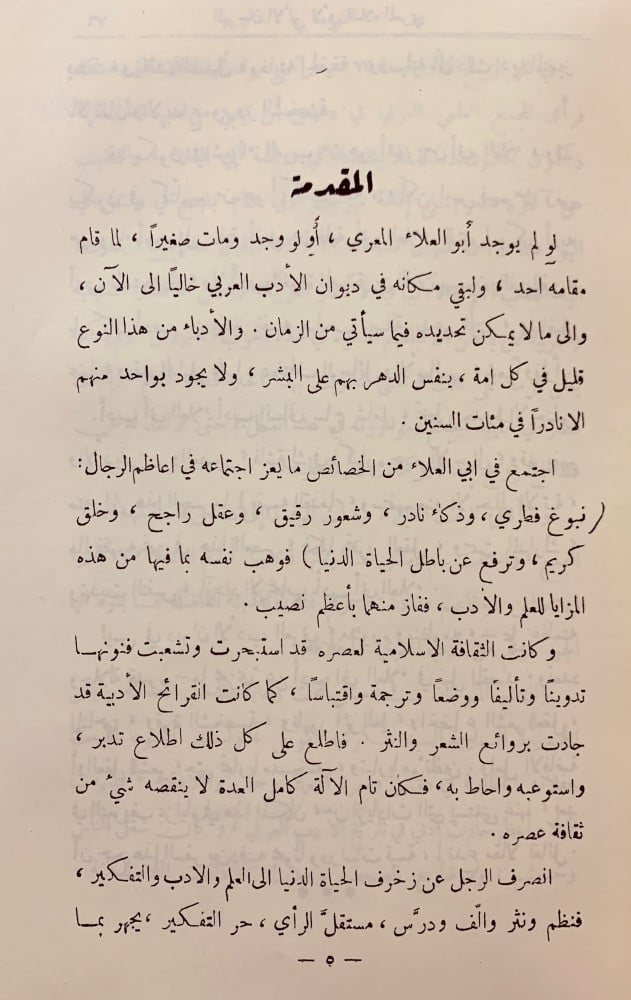 المقدمة
لو لم يوجد أبو العلاء المعري ، أَو لو وجد ومات صغيراً ، لما قام
مقامه احد ، ولبقي مكانه في ديوان الأدب العربي خالياً الى الآن ،
والى ما لا يمكن تحديده فيما سيأتي من الزمان . والأدباء من هذا النوع
قليل في كل امة ، ينفس الدهر بهم على البشر ، ولا يجود بواحد منهم
الا نادراً في مئات السنين .
اجتمع في ابي العلاء من الخصائص ما يعز اجتماعه في اعاظم الرجال :
( نبوغ فطري ، وذكاء نادر ، وشعور رقيق ، وعقل راجح ، وخلق
كريم ، وترفع عن باطل الحياة الدنيا ) فوهب نفسه بما فيها من هذه
المزايا للعلم والأدب ، ففاز منهما بأعظم نصيب .
وكانت الثقافة الاسلامية لعصره قد استبحرت وتشعبت فنونها
تدوينًا وتأليفًا ووضعاً وترجمة واقتباساً ، كما كانت القرائح الأدبية قد
جادت بروائع الشعر والنثر . فاطلع على كل ذلك اطلاع تدبر ،
واستوعبه واحاط به ، فكان تام الآلة كامل العدة لا ينقصه شيء من
ثقافة عصره .
انصرف الرجل عن زخرف الحياة الدنيا الى العلم والادب والتفكير ،
فنظم ونثر والّف ودرَّس ، مستقلَّ الرأي ، حر التفكير ، يجهر بما
— ٥ —